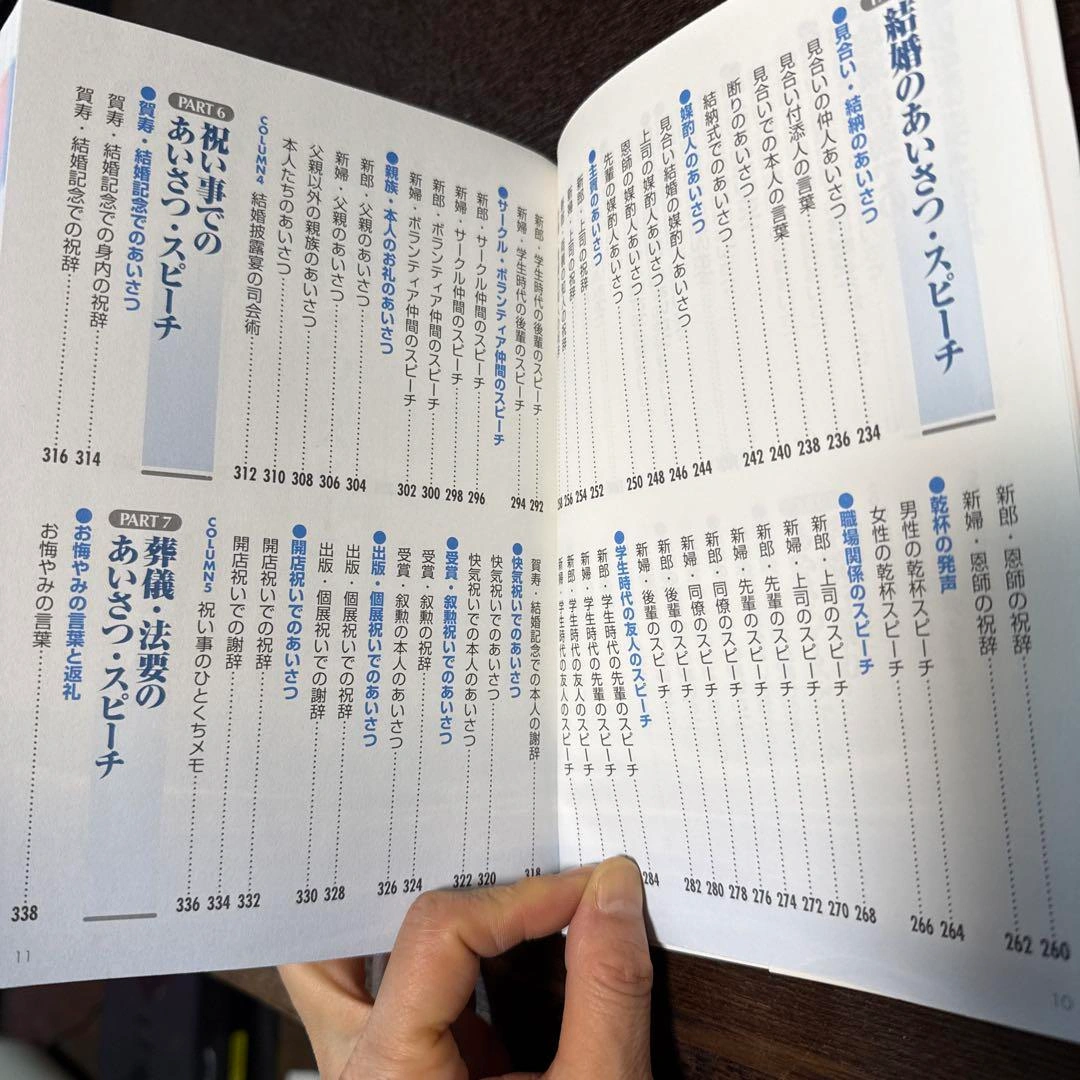 結婚のあいさつ・スピーチ
●見合い・結納のあいさつ
見合いの仲人あいさつ……234
見合い付添人の言葉……236
見合いでの本人の言葉……238
断りのあいさつ……240
結納式でのあいさつ……242
●媒酌人のあいさつ
見合い結婚の媒酌人あいさつ……244
上司の媒酌人あいさつ……246
恩師の媒酌人あいさつ……248
先輩の媒酌人あいさつ……250
●主賓のあいさつ
新郎・上司の祝辞……252
新婦・上司の祝辞……254
256
258
新郎・恩師の祝辞……260
新婦・恩師の祝辞……262
●乾杯の発声
男性の乾杯スピーチ……264
女性の乾杯スピーチ……266
●職場関係のスピーチ
新郎・上司のスピーチ……268
新婦・上司のスピーチ……270
新郎・先輩のスピーチ……272
新婦・先輩のスピーチ……274
新郎・同僚のスピーチ……276
新婦・同僚のスピーチ……278
新郎・後輩のスピーチ……280
新婦・後輩のスピーチ……282
●学生時代の友人のスピーチ
新郎・学生時代の先輩のスピーチ……284
新婦・学生時代の先輩のスピーチ……
新郎・学生時代の友人のスピーチ……
新婦・学生時代の友人のスピーチ……
10
新郎・学生時代の後輩のスピーチ……292
新婦・学生時代の後輩のスピーチ……294
●サークル・ボランティア仲間のスピーチ
新郎・サークル仲間のスピーチ……296
新婦・サークル仲間のスピーチ……298
新郎・ボランティア仲間のスピーチ……300
新婦・ボランティア仲間のスピーチ……302
●親族・本人のお礼のあいさつ
新郎・父親のあいさつ……304
新婦・父親のあいさつ……306
父親以外の親族のあいさつ……308
本人たちのあいさつ……310
COLUMN4 結婚披露宴の司会術……312
PART 6
祝い事での
あいさつ・スピーチ
●賀寿・結婚記念でのあいさつ
賀寿・結婚記念での身内の祝辞……314
賀寿・結婚記念での祝辞……316
賀寿・結婚記念での本人の謝辞……318
●快気祝いでのあいさつ
快気祝いでのあいさつ……320
快気祝いでの本人のあいさつ……322
●受賞・叙勲祝いでのあいさつ
受賞・叙勲の祝辞……324
受賞・叙勲の本人のあいさつ……326
●出版・個展祝いでのあいさつ
出版・個展祝いでの祝辞……328
出版・個展祝いでの謝辞……330
●開店祝いでのあいさつ
開店祝いでの祝辞……332
開店祝いでの謝辞……334
COLUMN5 祝い事のひとくちメモ……336
PART 7
葬儀・法要の
あいさつ・スピーチ
●お悔やみの言葉と返礼
お悔やみの言葉……338
11